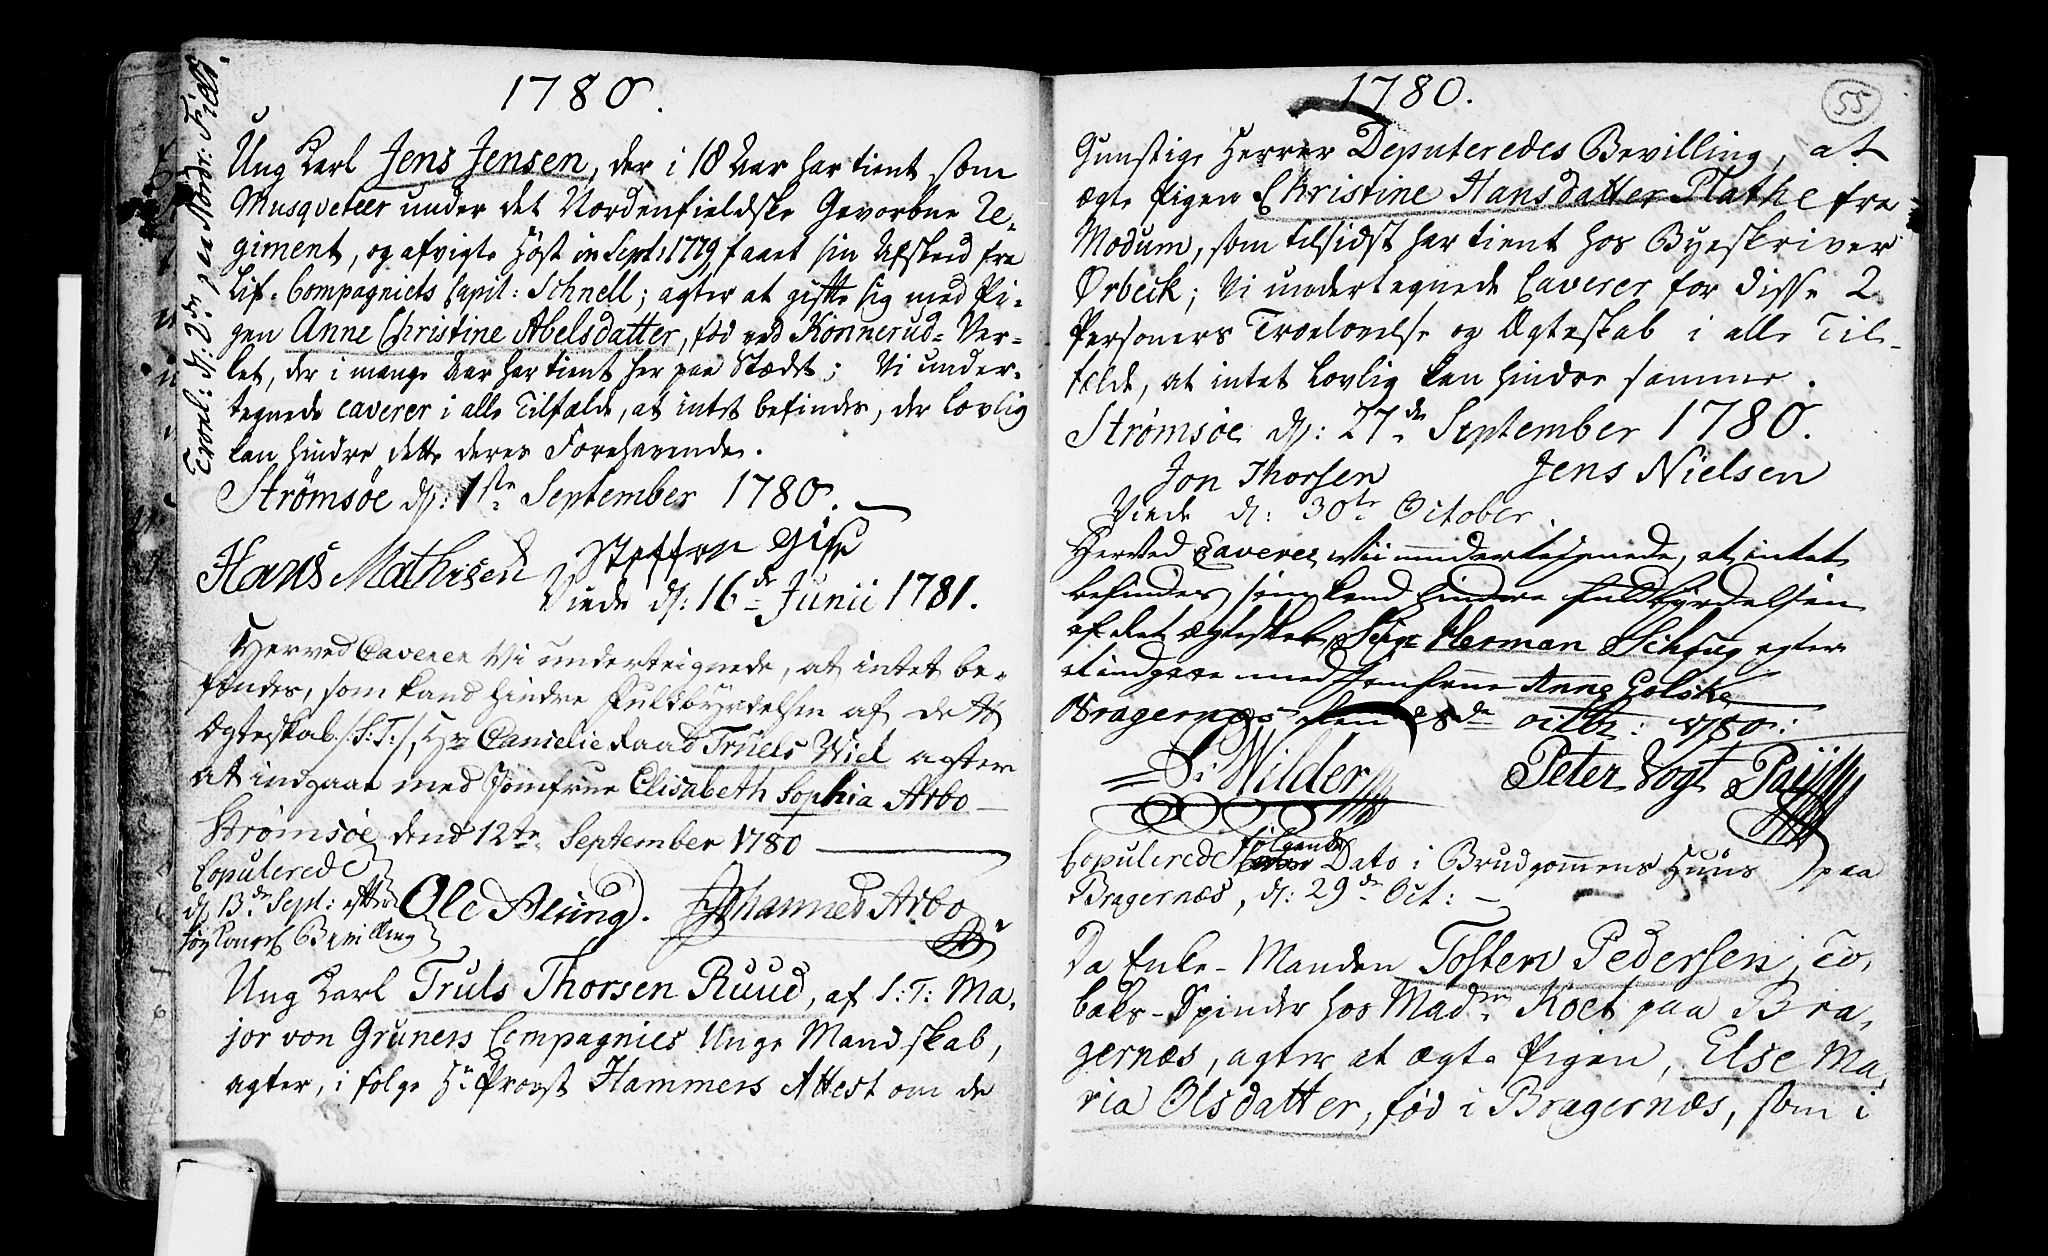 1780.
Trol: d: 2den paa Nordr: Field.
Ung Karl Jens Jensen, der i 18 Aar har tient som
Musqveteer under det Nordenfieldske Gevorbne Re-
giment, og afvigte Høst in Sept: 1779 faaet sin Afskeed fra
Lif-Compagniets Capit: Schnell; agter at gifte sig med Pi-
gen Anne Christine Abelsdatter, fød ved Konnerud-Ver-
ket, der i mange Aar har tient her paa Stædet; Vi under-
tegnede caverer i alle Tilfælde, at intet befindes, der lovlig
kan hindre dette deres Forehavende.
Strømsøe d: 1ste September 1780.
Hans Mathisen Steffen
Viede d: 16de Junii 1781.
Herved Caverer Vi underteignede, at intet be-
findes, som kand hindre Fuldbyrdelsen af dett
Ægteskab /S:T:/, Hr Cancelie Raad Truels Wiel agter
at indgaae med Jomfrue Elisabeth Sophia Arbo
Strømsøe dend 12te September 1780
Copulerede
d: 13de Sept: efter
Kongel Bevilling
Ole Alsing. Johannes Arbo
Ung Karl Truls Thorsen Ruud, af S:T: Ma-
jor von Gruners Compagnies Unge Mandskab,
agter, i følge Hr Provst Hammers Attest om de
1780.
55
Gunstige Herrer Deputeredes Bevilling, at
ægte Pigen Christine Hansdatter Plathe fra
Modum, som tilsidst har tient hos Byeskriver
Ørbeck; Vi undertegnede Caverer for disse 2
Personers Troelovelse og Ægteskab i alle Til-
fælde, at intet lovlig kan hindre samme.
Strømsøe d: 27de September 1780.
Jon Thorsen Jens Nielsen
Viede d: 30te October
Herved Caverer Vii undertegnede, at intet
befindes, som kand hindre fuldbyrdelsen
af det ægteskab, Herman agter
at indgaae med Jomfrue Anna Colske
Bragernæs den 28de octbr: 1780:
S: Wilder Peter Vogt
Copulerede følgende Dato i Brudgommens Huus paa
Bragernæs, d: 29de Oct:
Da Enke-Manden Tosten Pedersen, To-
baks-Spinder hos Madm Koet paa Bra-
gernæs, agter at ægte Pigen, Else Ma-
ria Olsdatter, fød i Bragernæs, som i